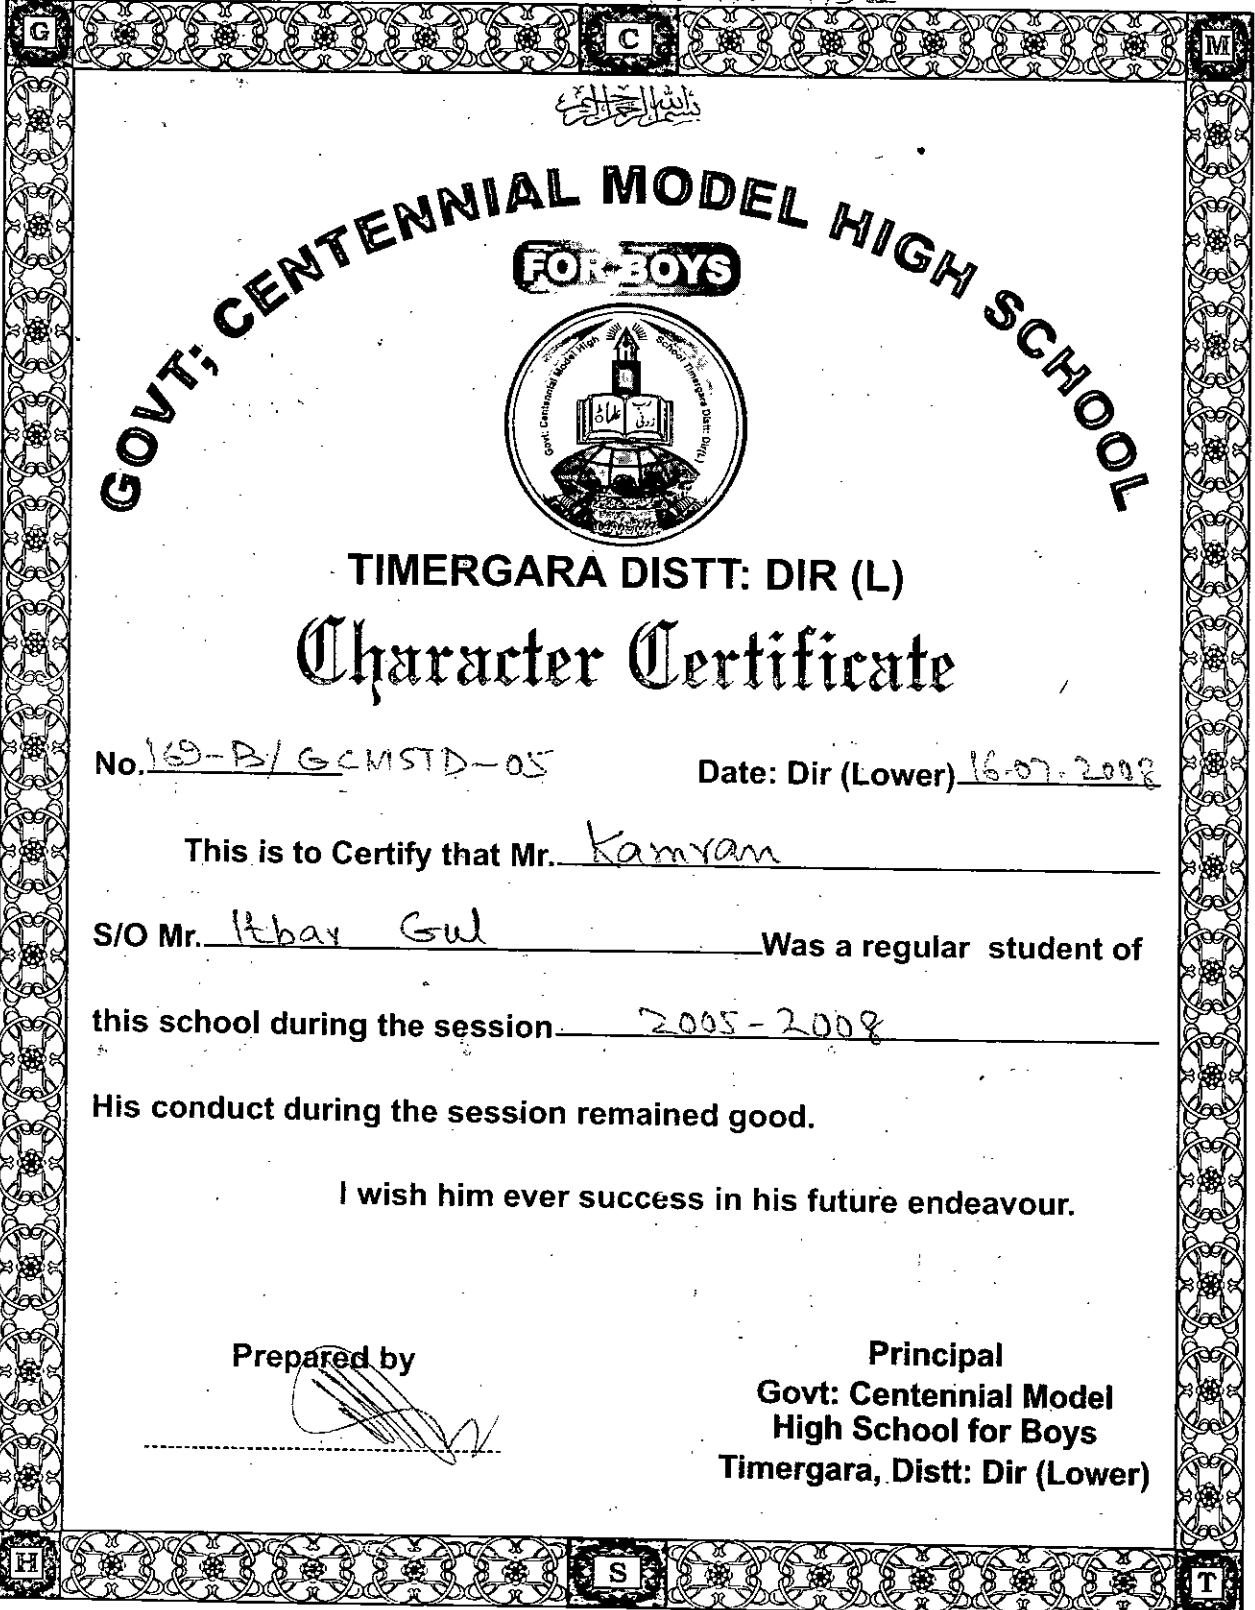 G C M
بسم الله الرحمن الرحيم
GOVT; CENTENNIAL MODEL HIGH SCHOOL
FOR BOYS
Govt: Centennial Model High School Timergara Distt: Dir(L)
رب زدنی علما
TIMERGARA DISTT: DIR (L)
Character Certificate
No. 169-B/GCMSTD-05 Date: Dir (Lower) 16-07-2008
This is to Certify that Mr. Kamran
S/O Mr. Itbar Gul Was a regular student of
this school during the session 2005-2008
His conduct during the session remained good.
I wish him ever success in his future endeavour.
Prepared by
Principal
Govt: Centennial Model
High School for Boys
Timergara, Distt: Dir (Lower)
H S T